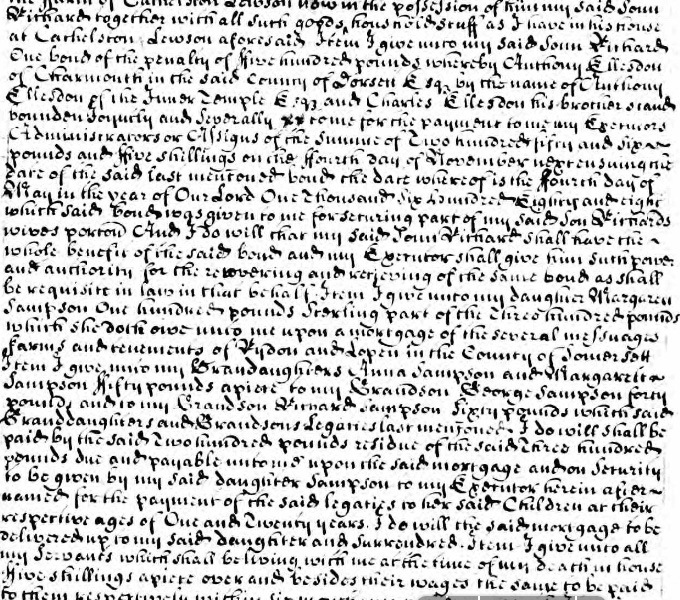 the Farm of Catherston Lewson now in the possession of him my said Sonn
Richard together with all such goods houshold stuff as I have in his house
at Catherston Lewson aforesaid Item I give unto my said Sonn Richard
One bond of the penalty of ffive hundred pounds whereby Anthony Ellesdon
of Charmouth in the said County of Dorsett Esqr by the name of Anthony
Ellesdon of the Inner Temple Esqr and Charles Ellesdon his brother stand
bounden Joyntly and severally to me for the payment to me my Executors
Administrators or Assigns of the summe of Two hundred fifty and six
pounds and ffive shillings on the ffourth day of November next ensuing the
date of the said last mentoned bond the date whereof is the ffourth day of
May in the year of Our Lord One Thousand Six hundred Eighty and eight
which said bond was given to me for securing part of my said Son Richards
wives porton And I do will that my said Sonn Richard shall have the
whole benefit of the said bond and my Executor shall give him such power
and authority for the recovering and receiving of the same bond as shall
be requisite in law in that behalf Item I give unto my daughter Margarett
Sampson One hundred pounds Sterling part of the Three hundred pounds
which she doth owe unto me upon a mortgage of the several messuages
ffarms and tenements of Rydon and Lopen in the County of Somersett
Item I give unto my Grandaughters Anna Sampson and Margarett
Sampson ffifty pounds apiece to my Grandson George Sampson forty
pounds and to my Grandson Richard Sampson Sixty pounds which said
Granddaughters and Grandsons Legacies last mentoned I do will shall be
paid by the said Two hundred pounds residue of the said Three hundred
pounds due and payable unto me upon the said mortgage and on Security
to be given by my said daughter Sampson to my Executor herein after
named for the payment of the said legacies to her said Children at their
respective ages of One and Twenty years I do will the said mortgage to be
delivered up to my said daughter and surrendred Item I give unto all
my Servants which shall be living with me at the time of my death in house
ffive shillings apiece over and besides their wages the same to be paid
to them respectively within